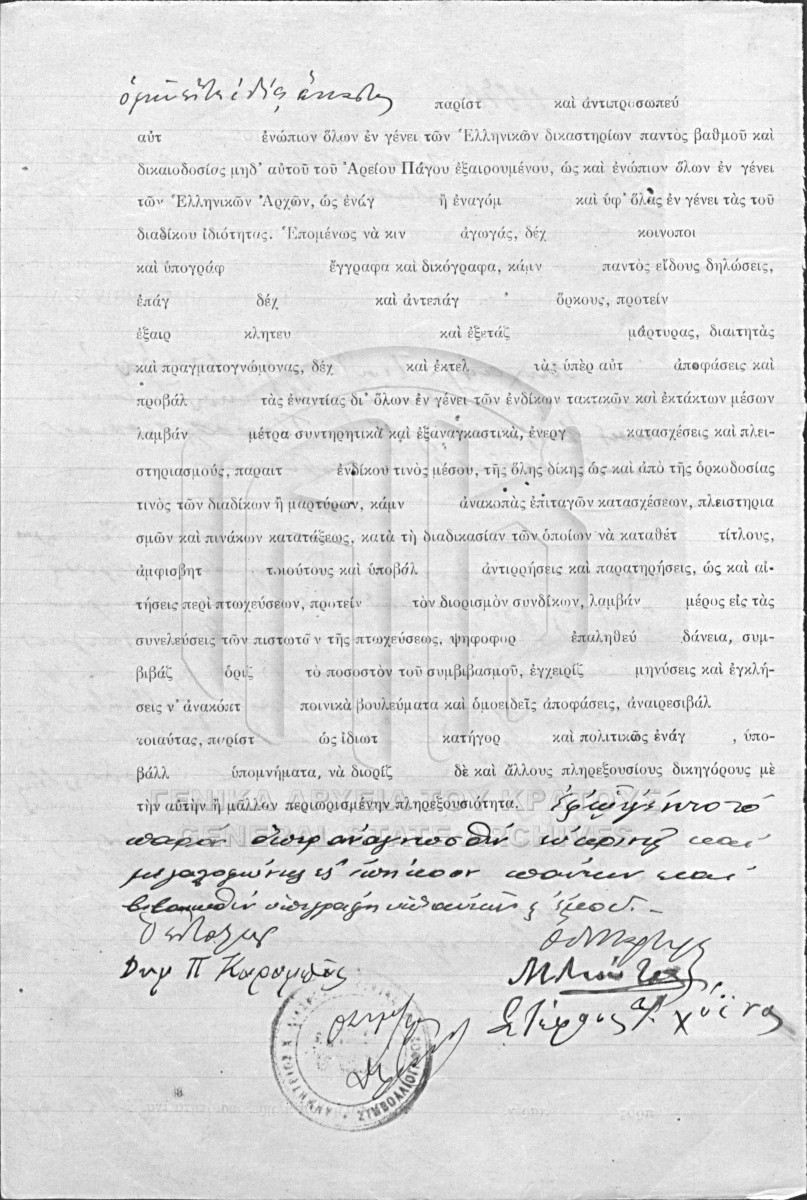 παρίστ καὶ ἀντιπροσωπεύ
αὐτ ἐνώπιον ὅλων ἐν γένει τῶν Ἑλληνικῶν δικαστηρίων παντὸς βαθμοῦ καὶ
δικαιοδοσίας μηδ' αὐτοῦ τοῦ Ἀρείου Πάγου ἐξαιρουμένου, ὡς καὶ ἐνώπιον ὅλων ἐν γένει
τῶν Ἑλληνικῶν Ἀρχῶν, ὡς ἐνάγ ἢ ἐναγόμ καὶ ὑφ' ὅλας ἐν γένει τὰς τοῦ
διαδίκου ἰδιότητας. Ἑπομένως νὰ κιν ἀγωγάς, δέχ κοινοποι
καὶ ὑπογράφ ἔγγραφα καὶ δικόγραφα, κάμν παντὸς εἴδους δηλώσεις,
ἐπάγ δέχ καὶ ἀντεπάγ ὅρκους, προτείν
ἐξαιρ κλητευ καὶ ἐξετάζ μάρτυρας, διαιτητὰς
καὶ πραγματογνώμονας, δέχ καὶ ἐκτελ τὰς ὑπὲρ αὐτ ἀποφάσεις καὶ
προβάλ τὰς ἐναντίας δι' ὅλων ἐν γένει τῶν ἐνδίκων τακτικῶν καὶ ἐκτάκτων μέσων
λαμβάν μέτρα συντηρητικὰ καὶ ἐξαναγκαστικὰ, ἐνεργ κατασχέσεις καὶ πλει-
στηριασμούς, παραιτ ἐνδίκου τινὸς μέσου, τῆς ὅλης δίκης ὡς καὶ ἀπὸ τῆς ὁρκοδοσίας
τινὸς τῶν διαδίκων ἢ μαρτύρων, κάμν ἀνακοπὰς ἐπιταγῶν κατασχέσεων, πλειστηρια
σμῶν καὶ πινάκων κατατάξεως, κατὰ τὴ διαδικασίαν τῶν ὁποίων νὰ καταθέτ τίτλους,
ἀμφισβητ τοιούτους καὶ ὑποβάλ ἀντιρρήσεις καὶ παρατηρήσεις, ὡς καὶ αἰ-
τήσεις περὶ πτωχεύσεων, προτείν τὸν διορισμὸν συνδίκων, λαμβάν μέρος εἰς τὰς
συνελεύσεις τῶν πιστωτῶν τῆς πτωχεύσεως, ψηφοφορ ἐπαληθεύ δάνεια, συμ-
βιβάζ ὁρίζ τὸ ποσοστὸν τοῦ συμβιβασμοῦ, ἐγχειρίζ μηνύσεις καὶ ἐγκλή-
σεις ν' ἀνακόπτ ποινικὰ βουλεύματα καὶ ὁμοειδεῖς ἀποφάσεις, ἀναιρεσιβάλ
τοιαύτας, παρίστ ὡς ἰδιωτ κατήγορ καὶ πολιτικῶς ἐνάγ , ὑπο-
βάλλ ὑπομνήματα, νὰ διορίζ δὲ καὶ ἄλλους πληρεξουσίους δικηγόρους μὲ
τὴν αὐτὴν ἢ μᾶλλον περιωρισμένην πληρεξουσιότητα.
παρὸν ὅπερ ἀναγνωσθὲν εὐκρινῶς καὶ
μεγαλοφώνως εἰς ἐπήκοον πάντων καὶ
βεβαιωθὲν ὑπεγράφη
Δημ Π Καραμπᾶς
Στέργιος
ΔΗΜΗΤΡΙΟΣ Χ ΣΥΜΒΟΛΑΙΟΓΡΑΦΟΣ
ΓΕΝΙΚΑ ΑΡΧΕΙΑ ΤΟΥ ΚΡΑΤΟΥΣ
GENERAL STATE ARCHIVES